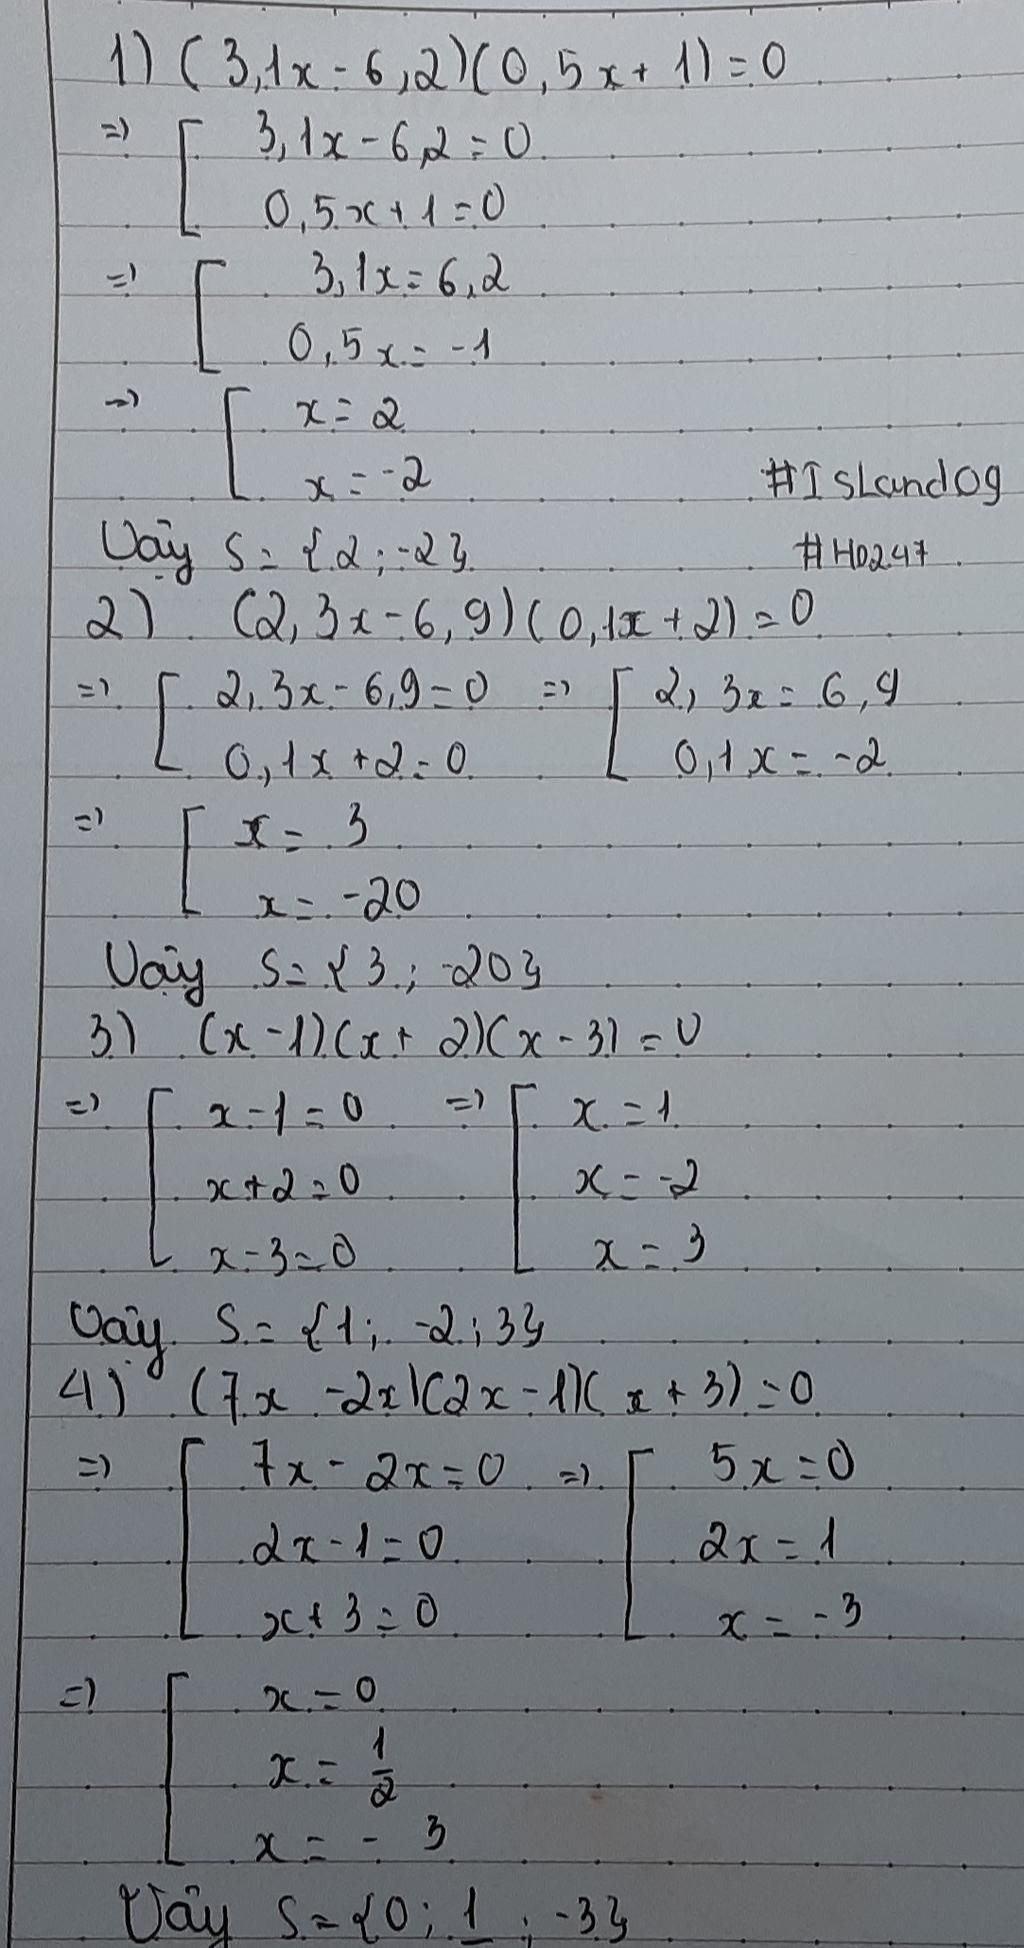 1) (3,1x - 6,2)(0,5x + 1) = 0
=> [ 3,1x - 6,2 = 0
0,5x + 1 = 0
=> [ 3,1x = 6,2
0,5x = -1
=> [ x = 2
x = -2
#IsLandog
Vậy S = {2 ; -2}
#H0247
2) (2,3x - 6,9)(0,1x + 2) = 0
=> [ 2,3x - 6,9 = 0 => [ 2,3x = 6,9
0,1x + 2 = 0 0,1x = -2
=> [ x = 3
x = -20
Vậy S = {3 ; -20}
3) (x - 1)(x + 2)(x - 3) = 0
=> [ x - 1 = 0 => [ x = 1
x + 2 = 0 x = -2
x - 3 = 0 x = 3
Vậy S = {1 ; -2 ; 3}
4) (7x - 2x)(2x - 1)(x + 3) = 0
=> [ 7x - 2x = 0 => [ 5x = 0
2x - 1 = 0 2x = 1
x + 3 = 0 x = -3
=> [ x = 0
x = 1/2
x = -3
Vậy S = {0 ; 1 ; -3}